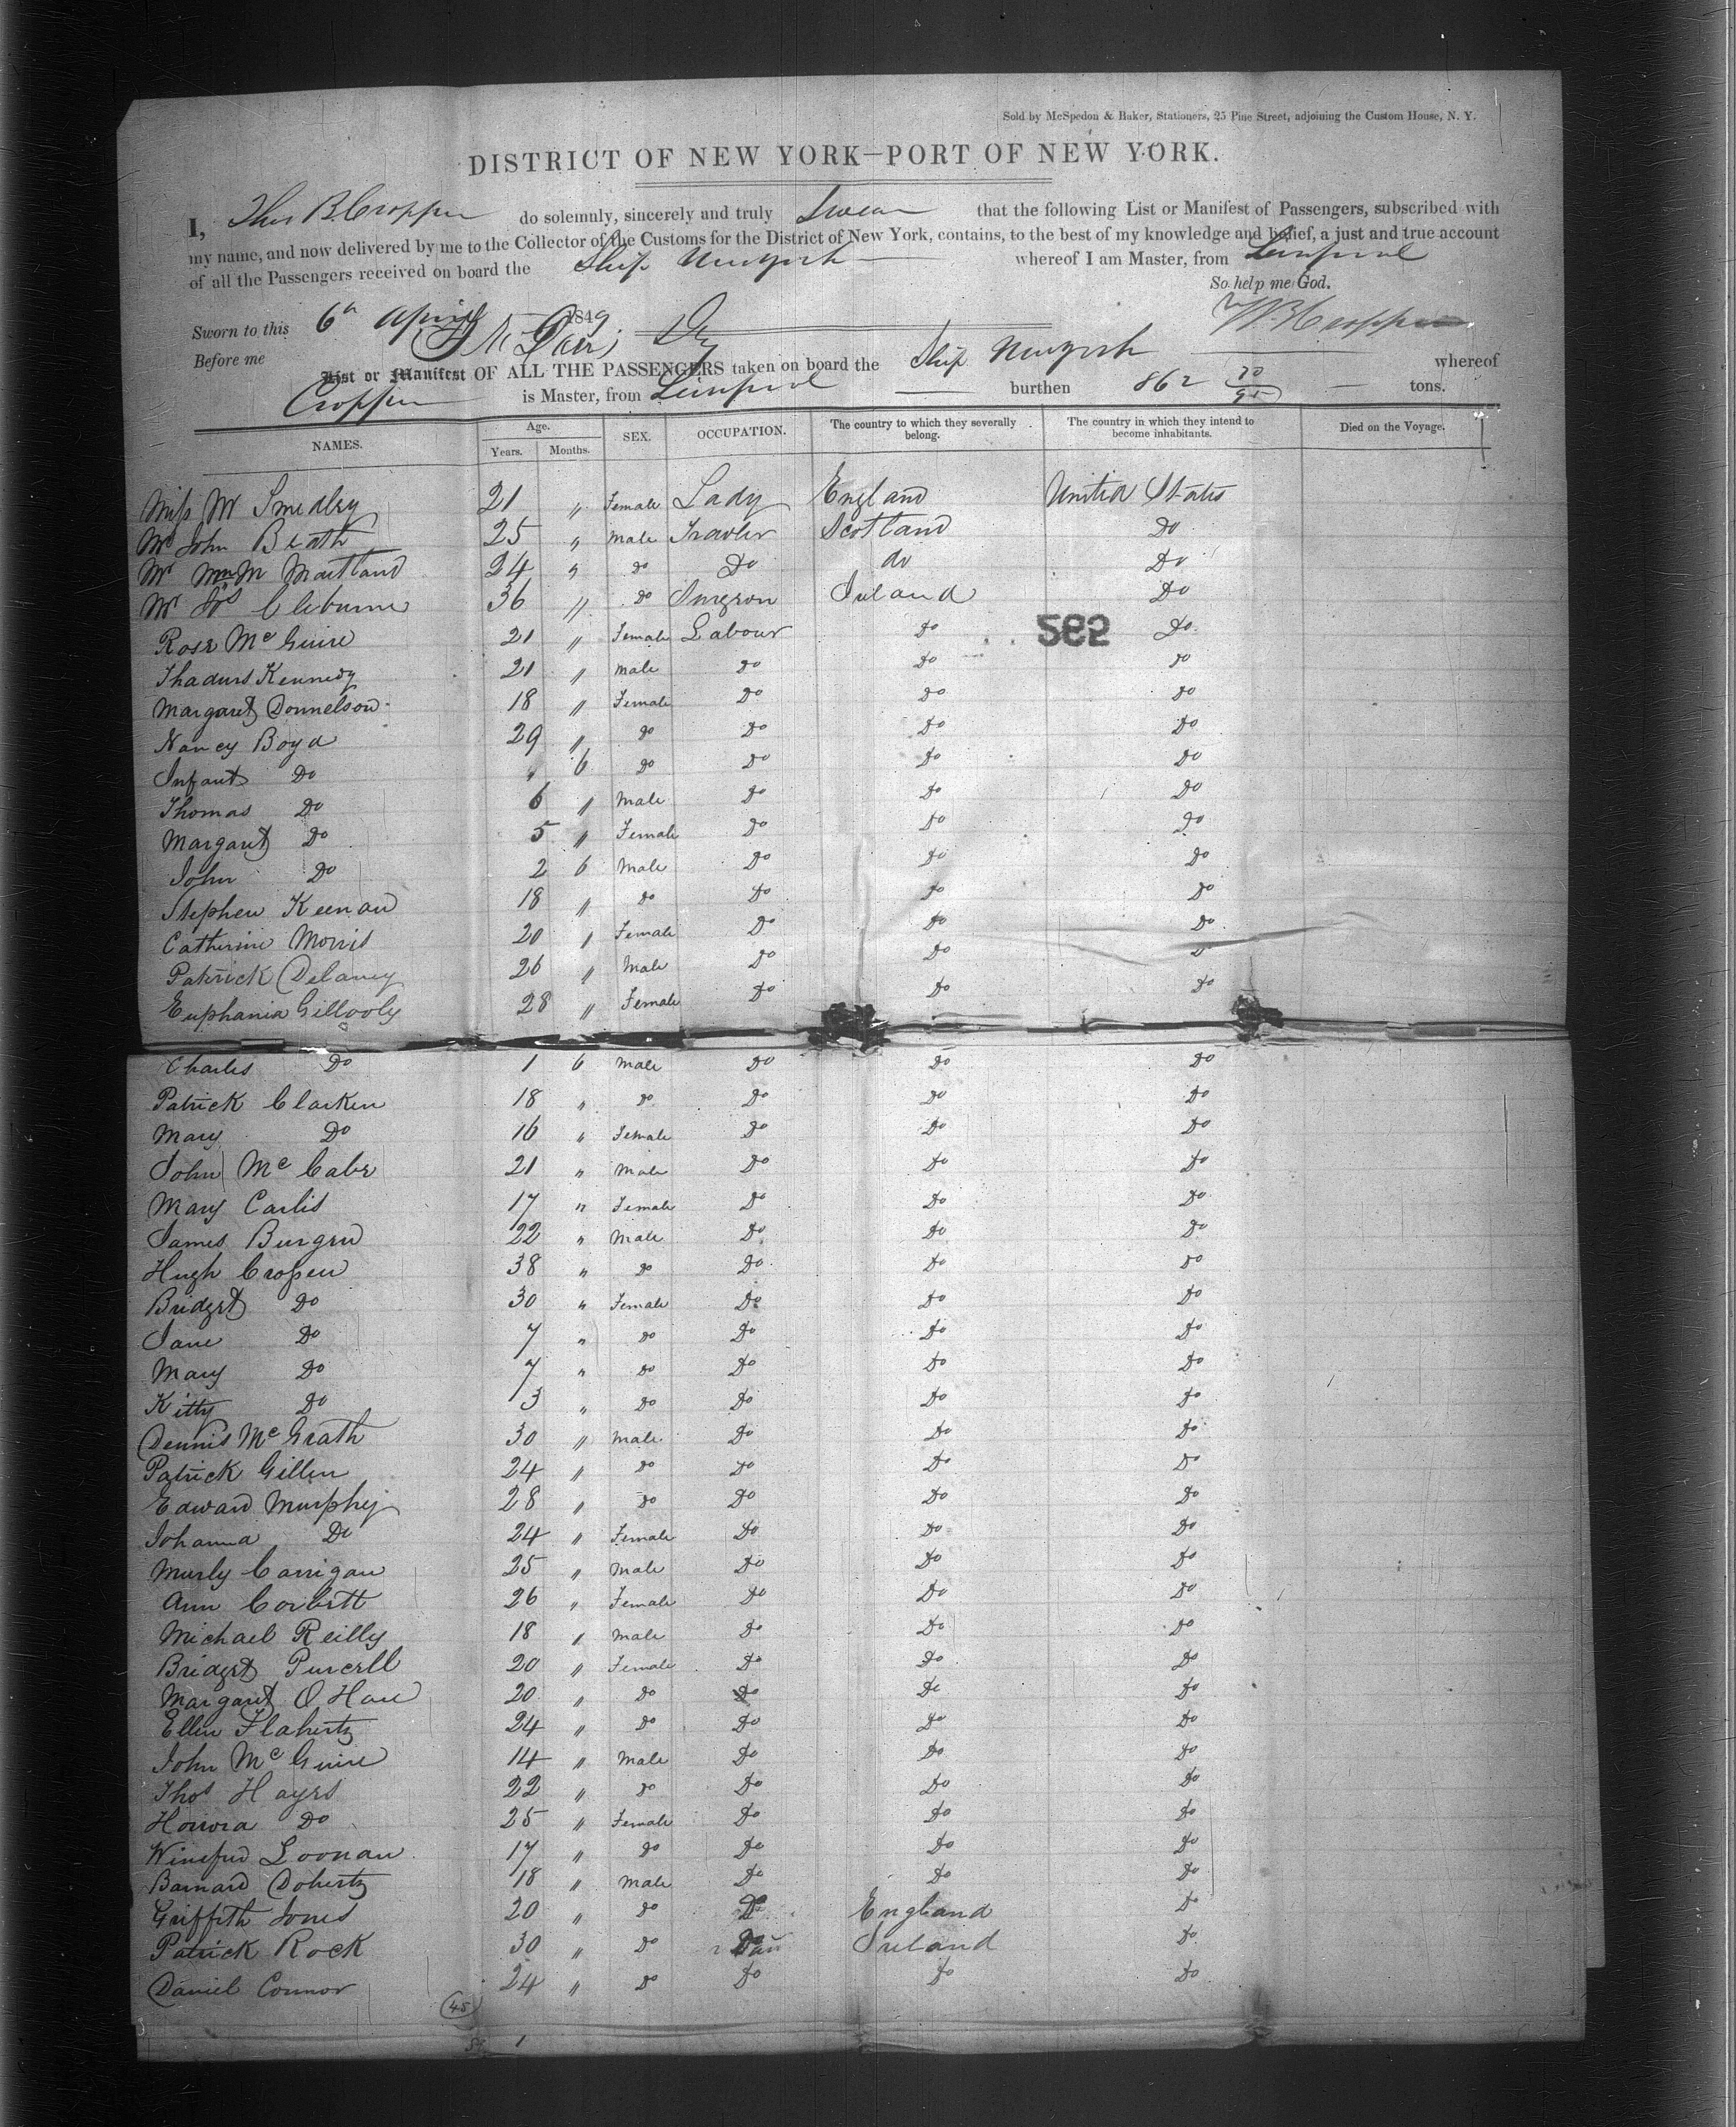 Sold by McSpedon & Baker, Stationers, 25 Pine Street, adjoining the Custom House, N. Y.
DISTRICT OF NEW YORK—PORT OF NEW YORK.
I, Thos B Cropper do solemnly, sincerely and truly Swear that the following List or Manifest of Passengers, subscribed with
my name, and now delivered by me to the Collector of the Customs for the District of New York, contains, to the best of my knowledge and belief, a just and true account
of all the Passengers received on board the Ship New York whereof I am Master, from Liverpool
So help me God.
Sworn to this 6th April 1849 TB Cropper
Before me
List or Manifest OF ALL THE PASSENGERS taken on board the Ship New York whereof
Cropper is Master, from Liverpool burthen 862 70/95 tons.
NAMES. Age. Years. Months. SEX. OCCUPATION. The country to which they severally belong. The country in which they intend to become inhabitants. Died on the Voyage.
Miss M Smedley 21 " Female Lady England United States
Mr John Beath 25 " Male Traveler Scotland Do
Mr Wm M Maitland 24 " Do Do do Do
Mr Jos Cleburne 36 " Do Surgeon Ireland Do
Rose Mc Guire 21 " Female Labour Do 582 Do
Thadeus Kennedy 21 " Male Do Do Do
Margaret Donnelson 18 " Female Do Do Do
Nancy Boyd 29 " Do Do Do Do
Infant Do " 6 Do Do Do Do
Thomas Do 6 " Male Do Do Do
Margaret Do 5 " Female Do Do Do
John Do 2 6 Male Do Do Do
Stephen Keenan 18 " Do Do Do Do
Catherine Morris 20 " Female Do Do Do
Patrick Delaney 26 " Male Do Do Do
Euphania Gillooly 28 " Female Do Do Do
Charles Do 1 6 Male Do Do Do
Patrick Clarken 18 " Do Do Do Do
Mary Do 16 " Female Do Do Do
John Mc Cabe 21 " Male Do Do Do
Mary Carlis 17 " Female Do Do Do
James Burgen 22 " Male Do Do Do
Hugh Crossen 38 " Do Do Do Do
Bridget Do 30 " Female Do Do Do
Jane Do 7 " Do Do Do Do
Mary Do 7 " Do Do Do Do
Kitty Do 3 " Do Do Do Do
Dennis Mc Grath 30 " Male Do Do Do
Patrick Gillen 24 " Do Do Do Do
Edward Murphy 28 " Do Do Do Do
Johanna Do 24 " Female Do Do Do
Murly Carrigan 25 " Male Do Do Do
Ann Corbett 26 " Female Do Do Do
Michael Reilly 18 " Male Do Do Do
Bridget Purcell 20 " Female Do Do Do
Margaret O Hare 20 " Do Do Do Do
Ellen Flaherty 24 " Do Do Do Do
John Mc Guire 14 " Male Do Do Do
Thos Hayes 22 " Do Do Do Do
Honora Do 25 " Female Do Do Do
Winefred Loonan 17 " Do Do Do Do
Barnard Doherty 18 " Male Do Do Do
Griffith Jones 20 " Do Do England Do
Patrick Rock 30 " Do Ireland Do
Daniel Connor 24 " Do Do Do Do
45